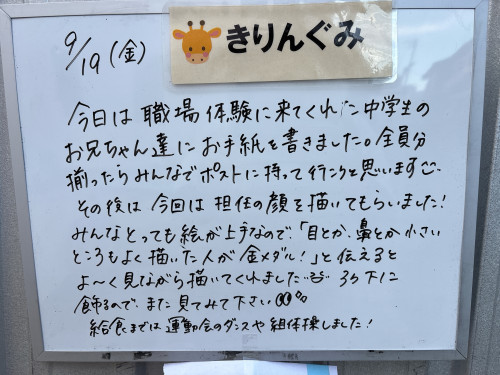 9/19(金)
きりんぐみ
今日は職場体験に来てくれた中学生の
お兄ちゃん達にお手紙を書きました。全員分
揃ったらみんなでポストに持って行こうと思います
その後は今回は担任の顔を描いてもらいました!
みんなとっても絵が上手なので、「目とか、鼻とか小さい
ところもよく描いた人が金メダル!」と伝えると
よ〜く見ながら描いてくれました
飾るので、また見てみて下さい
給食までは運動会のダンスや組体操しました!